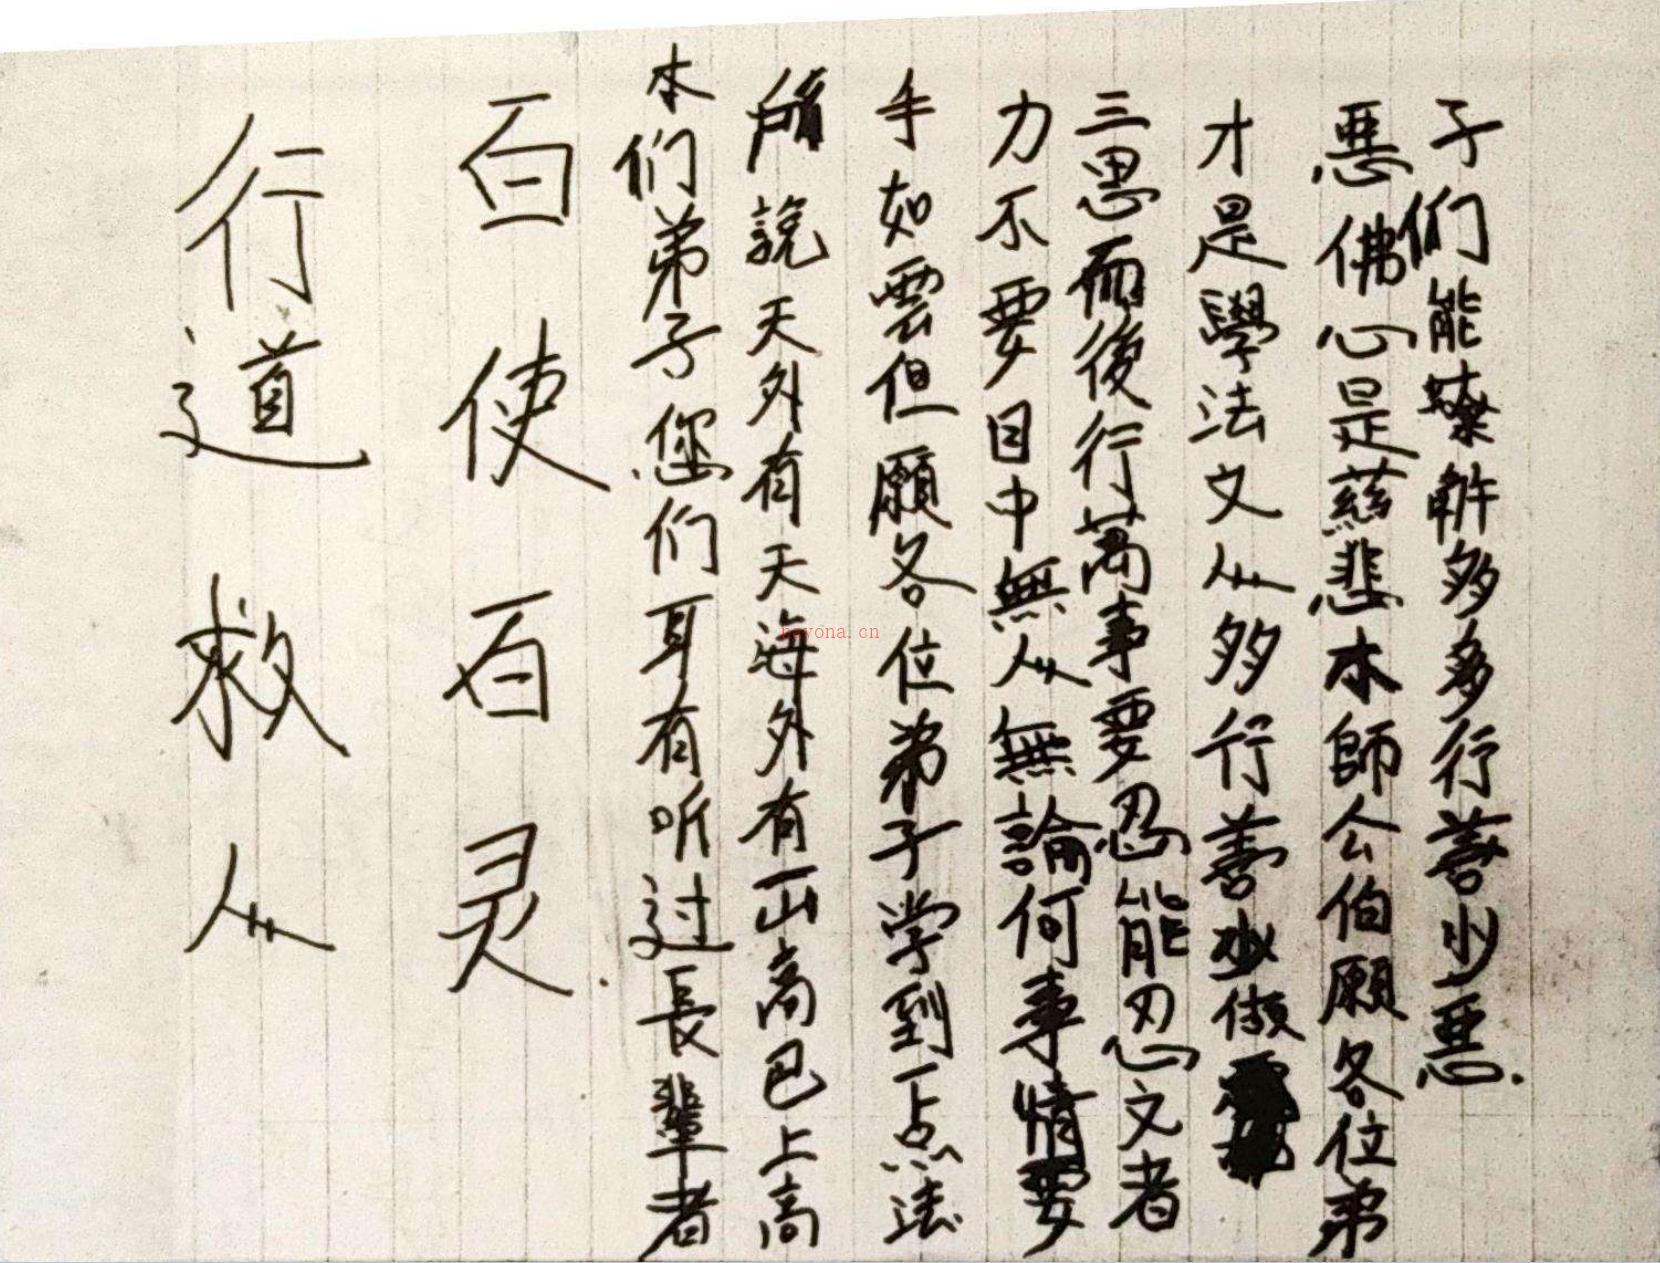 行道救人
百使百灵
本们弟子您们耳有听过長輩者
所說天外有天海外有山高巴上高
手如雲但願各位弟子学到一点法
力不要目中無人無論何事情要
三思而後行萬事要忍能忍文者
才是學法文人多行善少做
惡佛心是慈悲本師公伯願各位弟
子們能多多行善少惡.